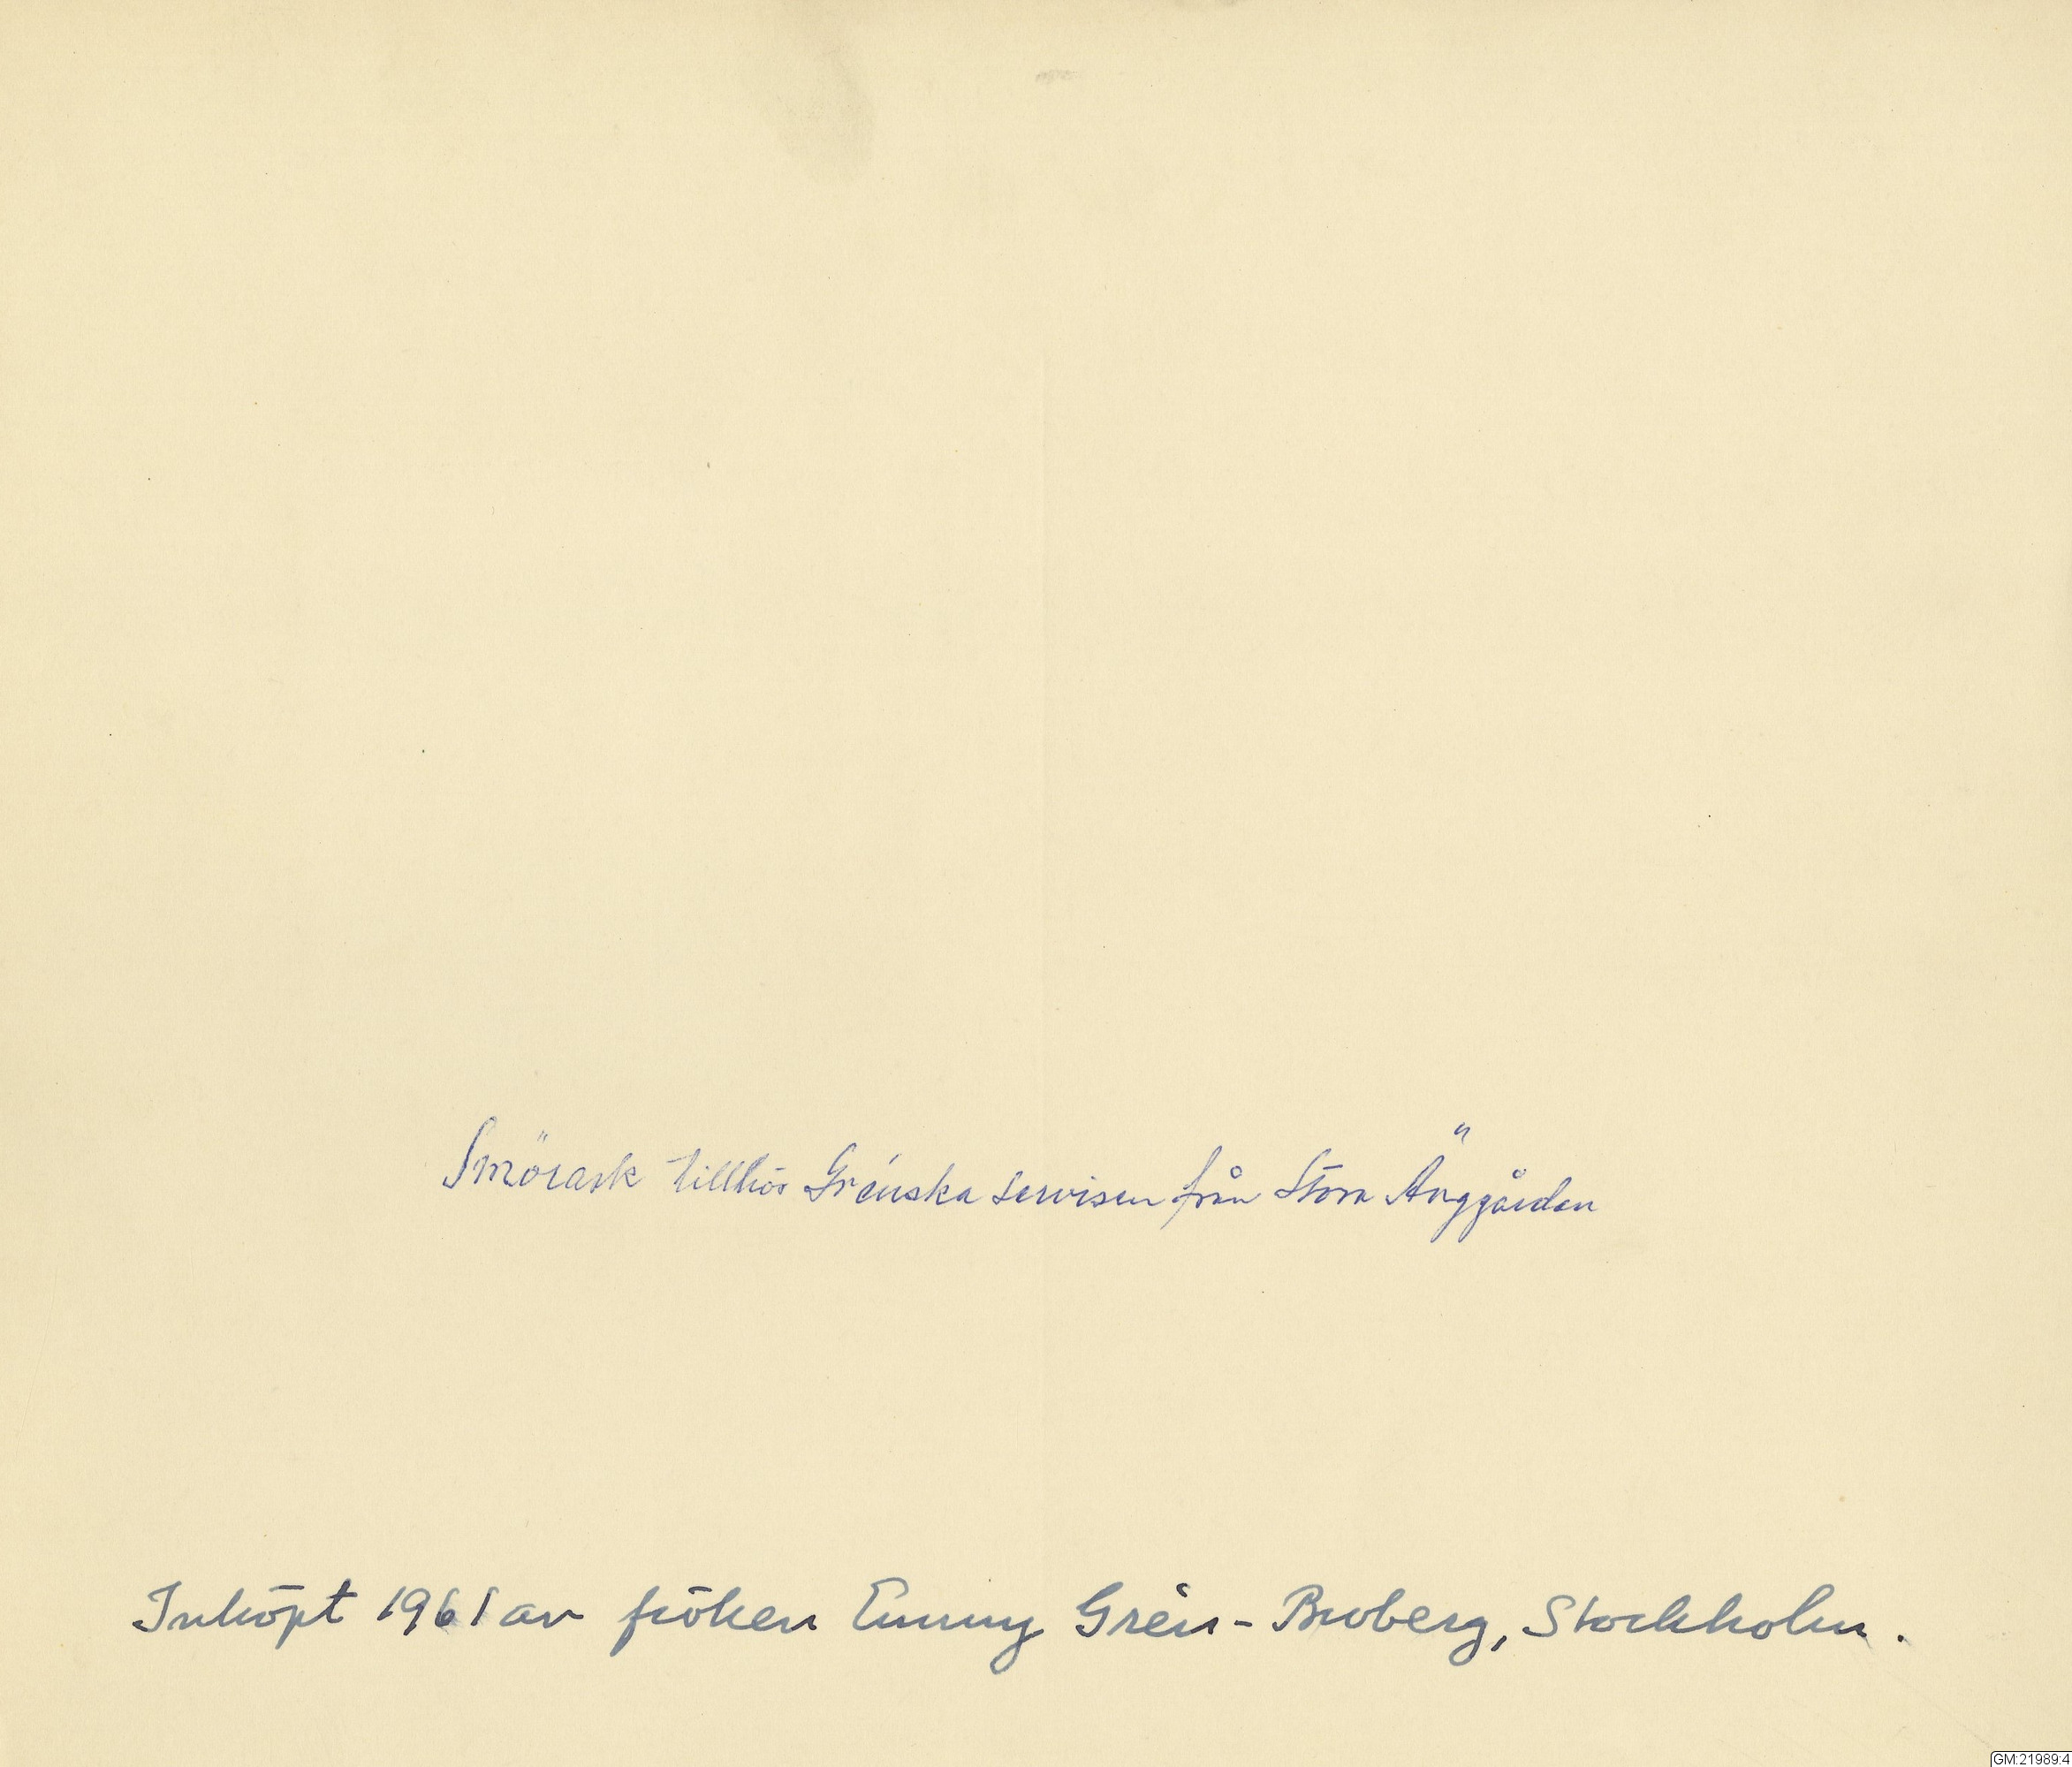 Smörask tillhör Grénska servisen från Stora Änggården
Inköpt 1961 av fröken Emmy Grén-Broberg, Stockholm.
GM:21989:4